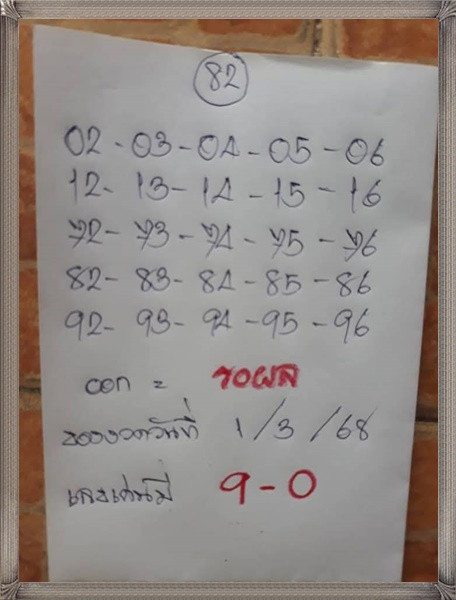 82
02 - 03 - 04 - 05 - 06
12 - 13 - 14 - 15 - 16
72 - 73 - 74 - 75 - 76
82 - 83 - 84 - 85 - 86
92 - 93 - 94 - 95 - 96
ออก = รอผล
ของงวดวันที่ 1/3/68
เลขเด่นมี 9-0